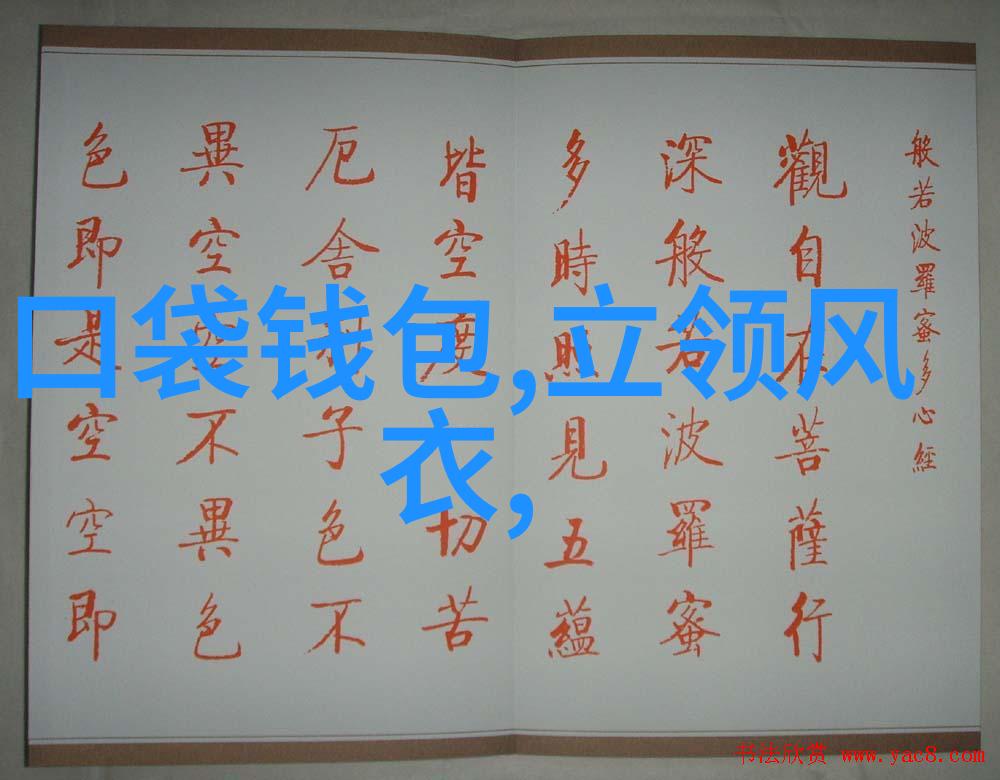 般若波羅蜜多心經
觀自在菩薩行
深般若波羅蜜
多時照見五蘊
皆空度切苦
厄舍利子色不
異空空不異色
色即是空空即
口袋钱包,立领风
衣,
书法欣赏 www.yac8.com